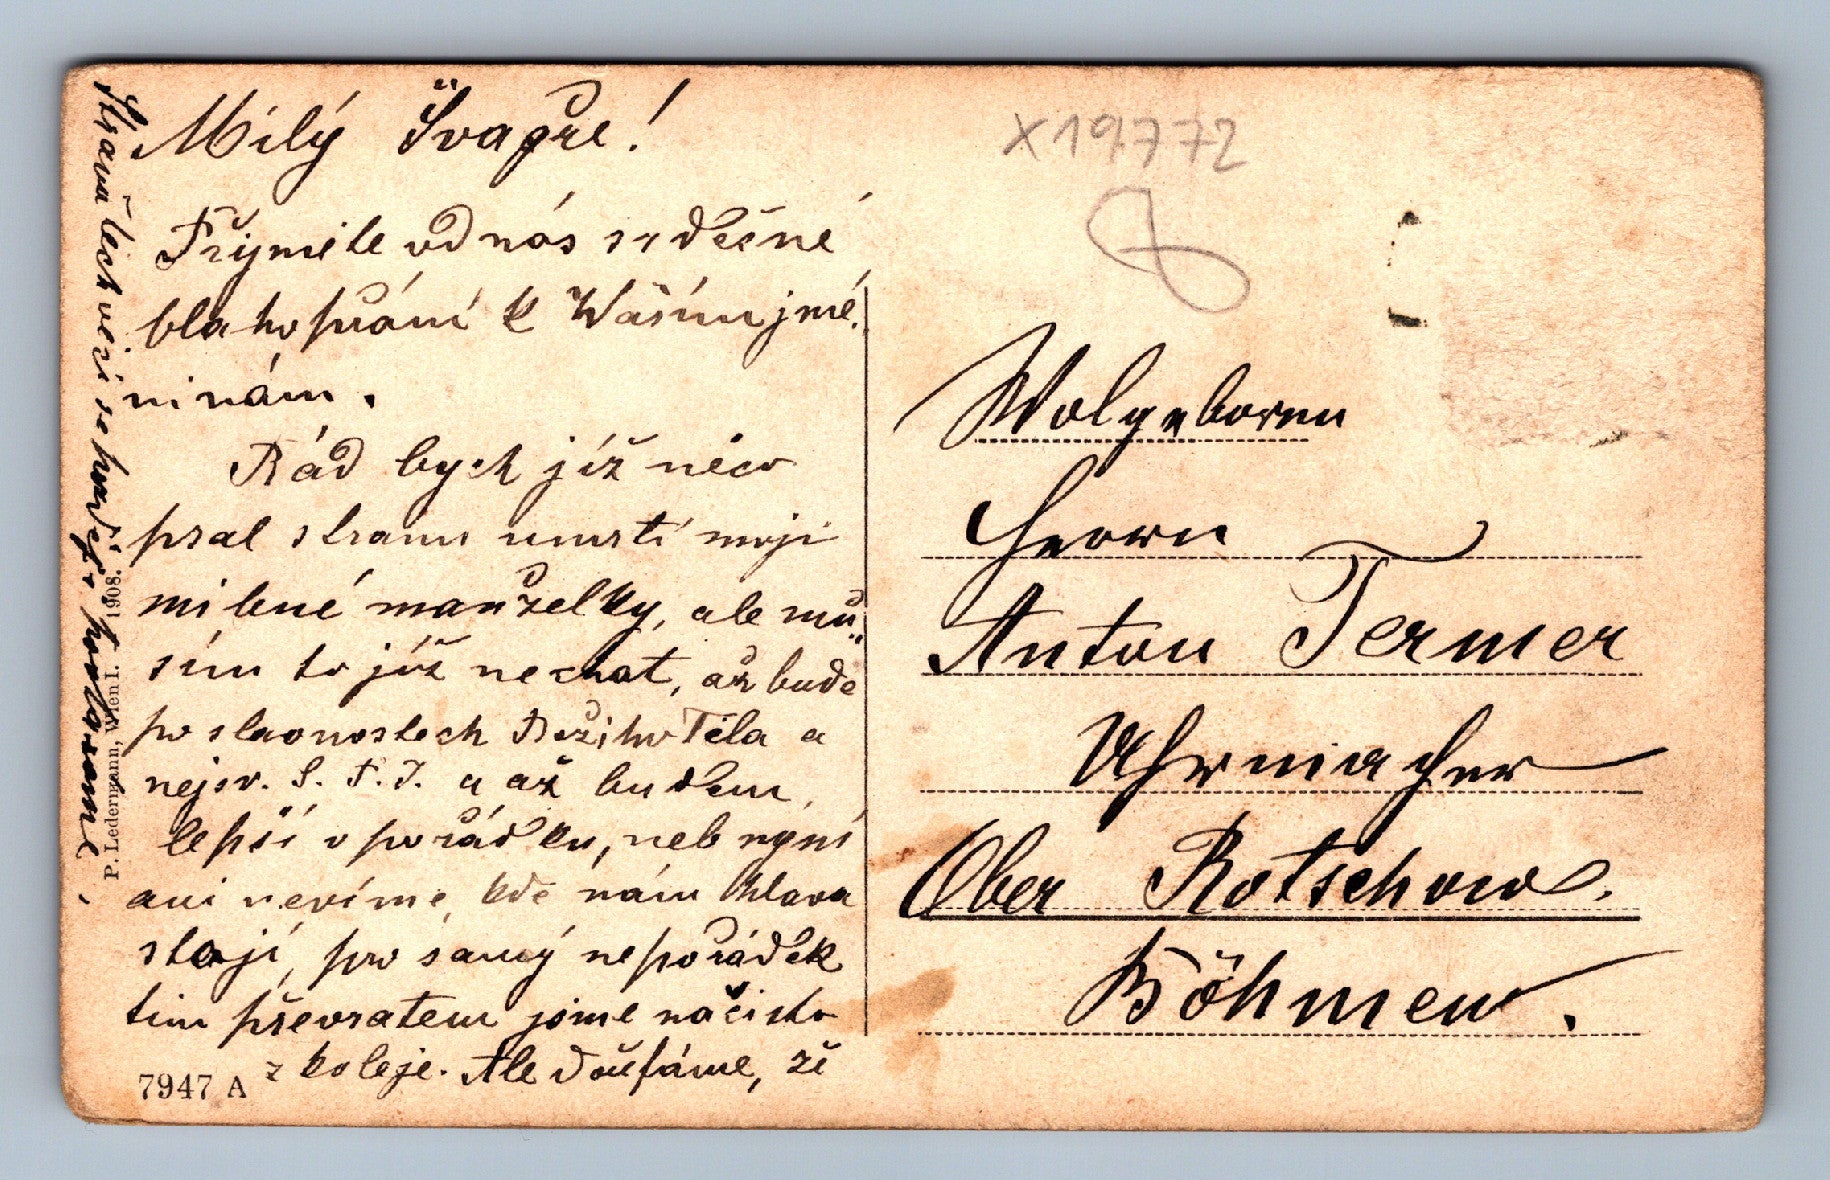 Milý Švagře!
Přijměte od nás srdečné
blahopřání k Vašim jmé-
ninám.
Rád bych již něco
psal stranu úmrtí mojí
milené manželky, ale mu-
sím to již nechat, až bude
po slavnostech Božího Těla a
nejsv. S. P. J. a až budem
lepší v pořádku, neb nyní
ani nevíme, kde nám hlava
stojí, pro samý nepořádek
tím převratem jsme načisto
z koleje. Ale doufáme, že
strava těch věcí se
7947 A
P. Ledermann, Wien I. 1908.
X19772
Wolgeboren
Herrn
Anton Termer
Uhrmacher
Ober Rotschow.
Böhmen.